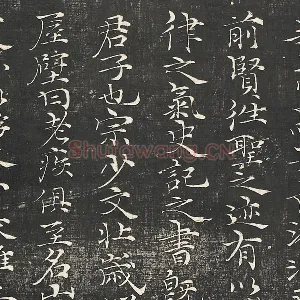 前賢往聖之迹有以
律之氣史記之書既
君子也宗少文壯歲
屋壁曰老疾俱至名山
Shufawang.CN